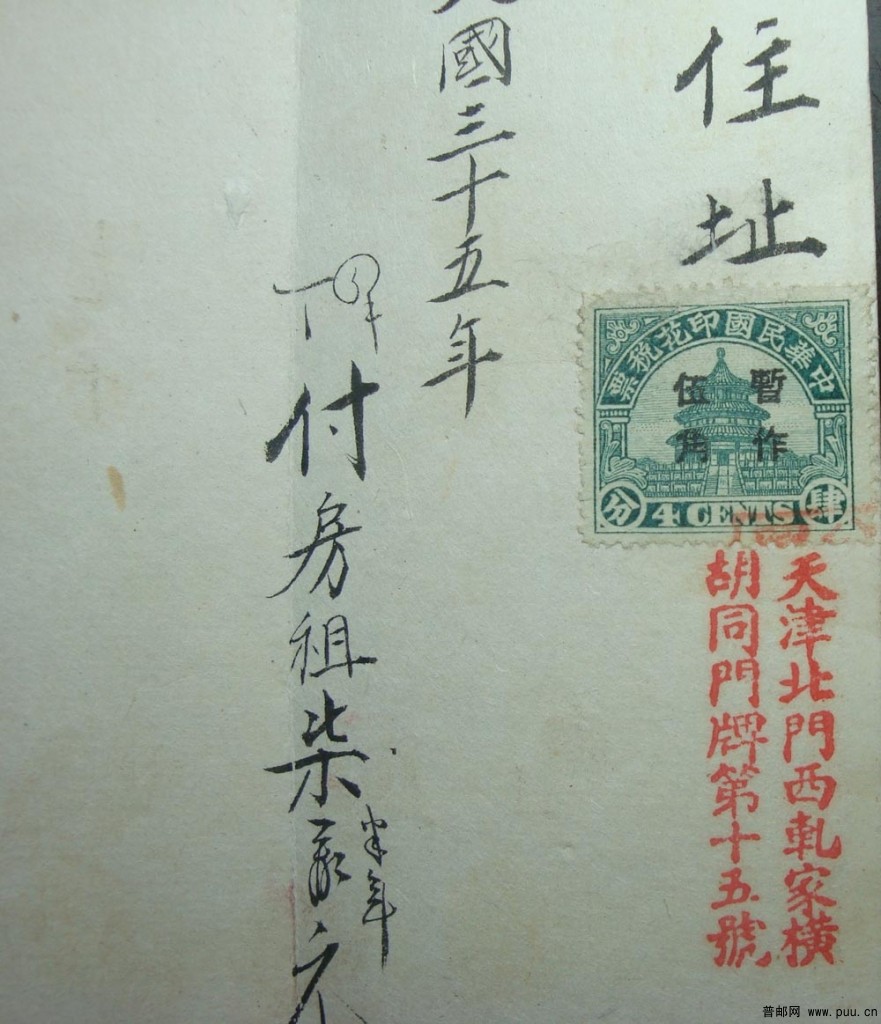 住址
中華民國印花稅票
暫作
伍角
分 4 CENTS 肆
天津北門西軋家橫
胡同門牌第十五號
國三十五年
付房租柒
半年
普邮网 www.puu.cn